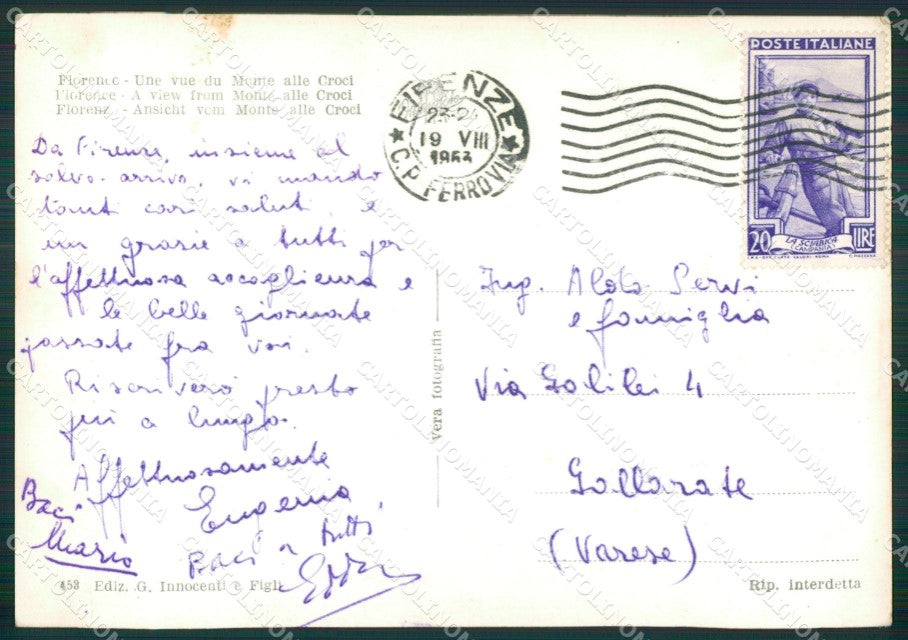 Florence - Une vue du Monte alle Croci
Florence - A view from Monte alle Croci
Florenz - Ansicht vom Monte alle Croci
Da Firenze, insieme al
salvo arrivo, vi mando
tanti cari saluti e
un grazie a tutti per
l'affettuosa accoglienza e
le belle giornate
passate fra voi.
Riscriverò presto
più a lungo.
Affettuosamente
Eugenia
Baci
Mario
Baci a tutti
453 Ediz. G. Innocenti e Figli
Vera fotografia
FIRENZE
19 VIII
C.P. FERROVIA
POSTE ITALIANE
LA SCIABICA
(CAMPANIA)
20 LIRE
Ing. Aldo Servi
e famiglia
Via Galilei 4
Gallarate
(Varese)
Rip. interdetta
CARTOLINOMANIA